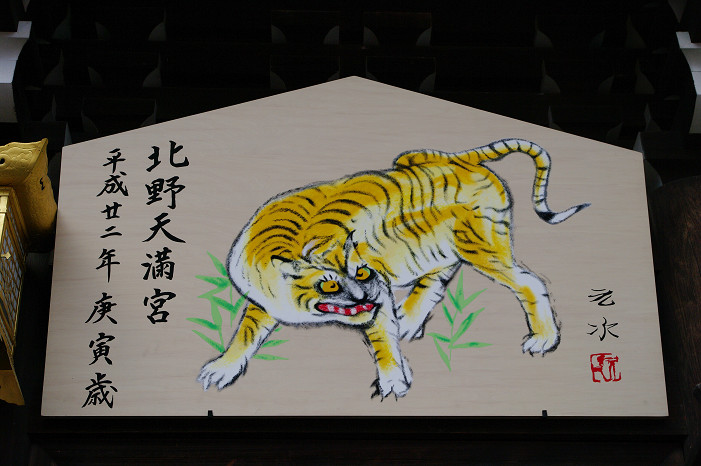 北野天満宮
平成廿二年 庚寅歳
元次